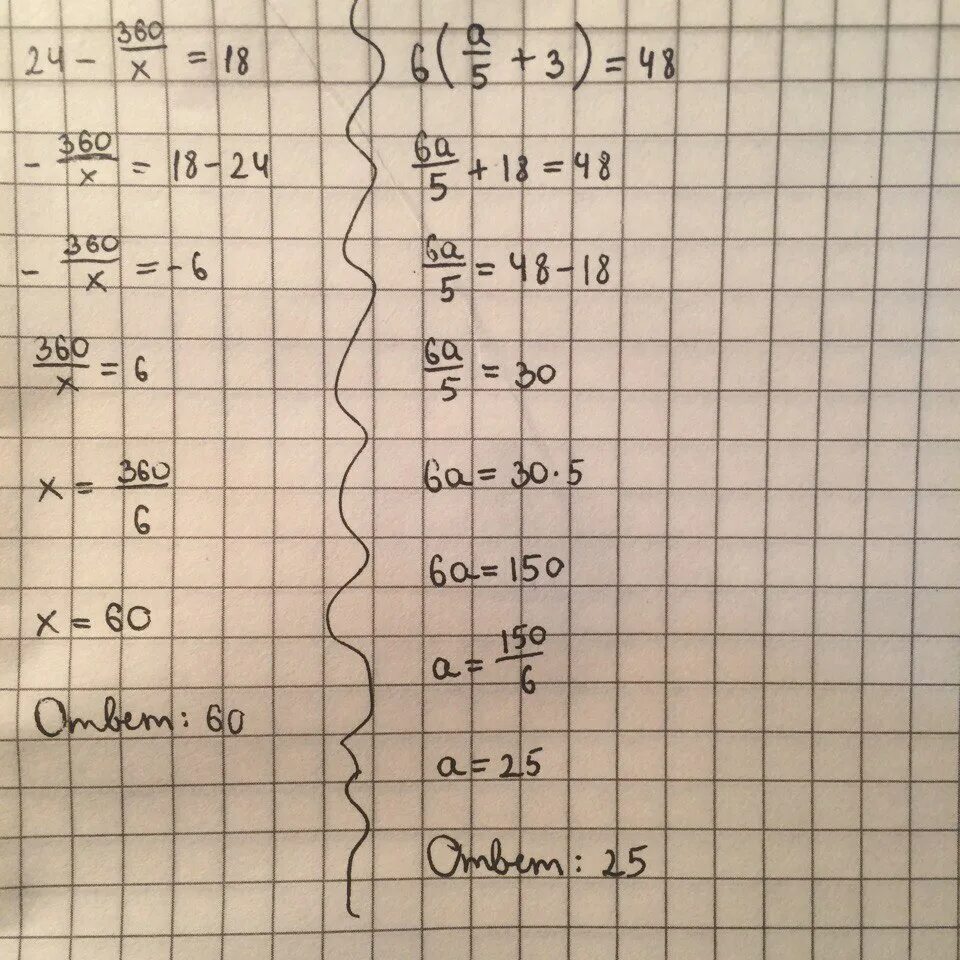 24 - 360/x = 18
- 360/x = 18 - 24
- 360/x = -6
360/x = 6
x = 360/6
x = 60
Ответ: 60
6(a/5 + 3) = 48
6a/5 + 18 = 48
6a/5 = 48 - 18
6a/5 = 30
6a = 30 · 5
6a = 150
a = 150/6
a = 25
Ответ: 25